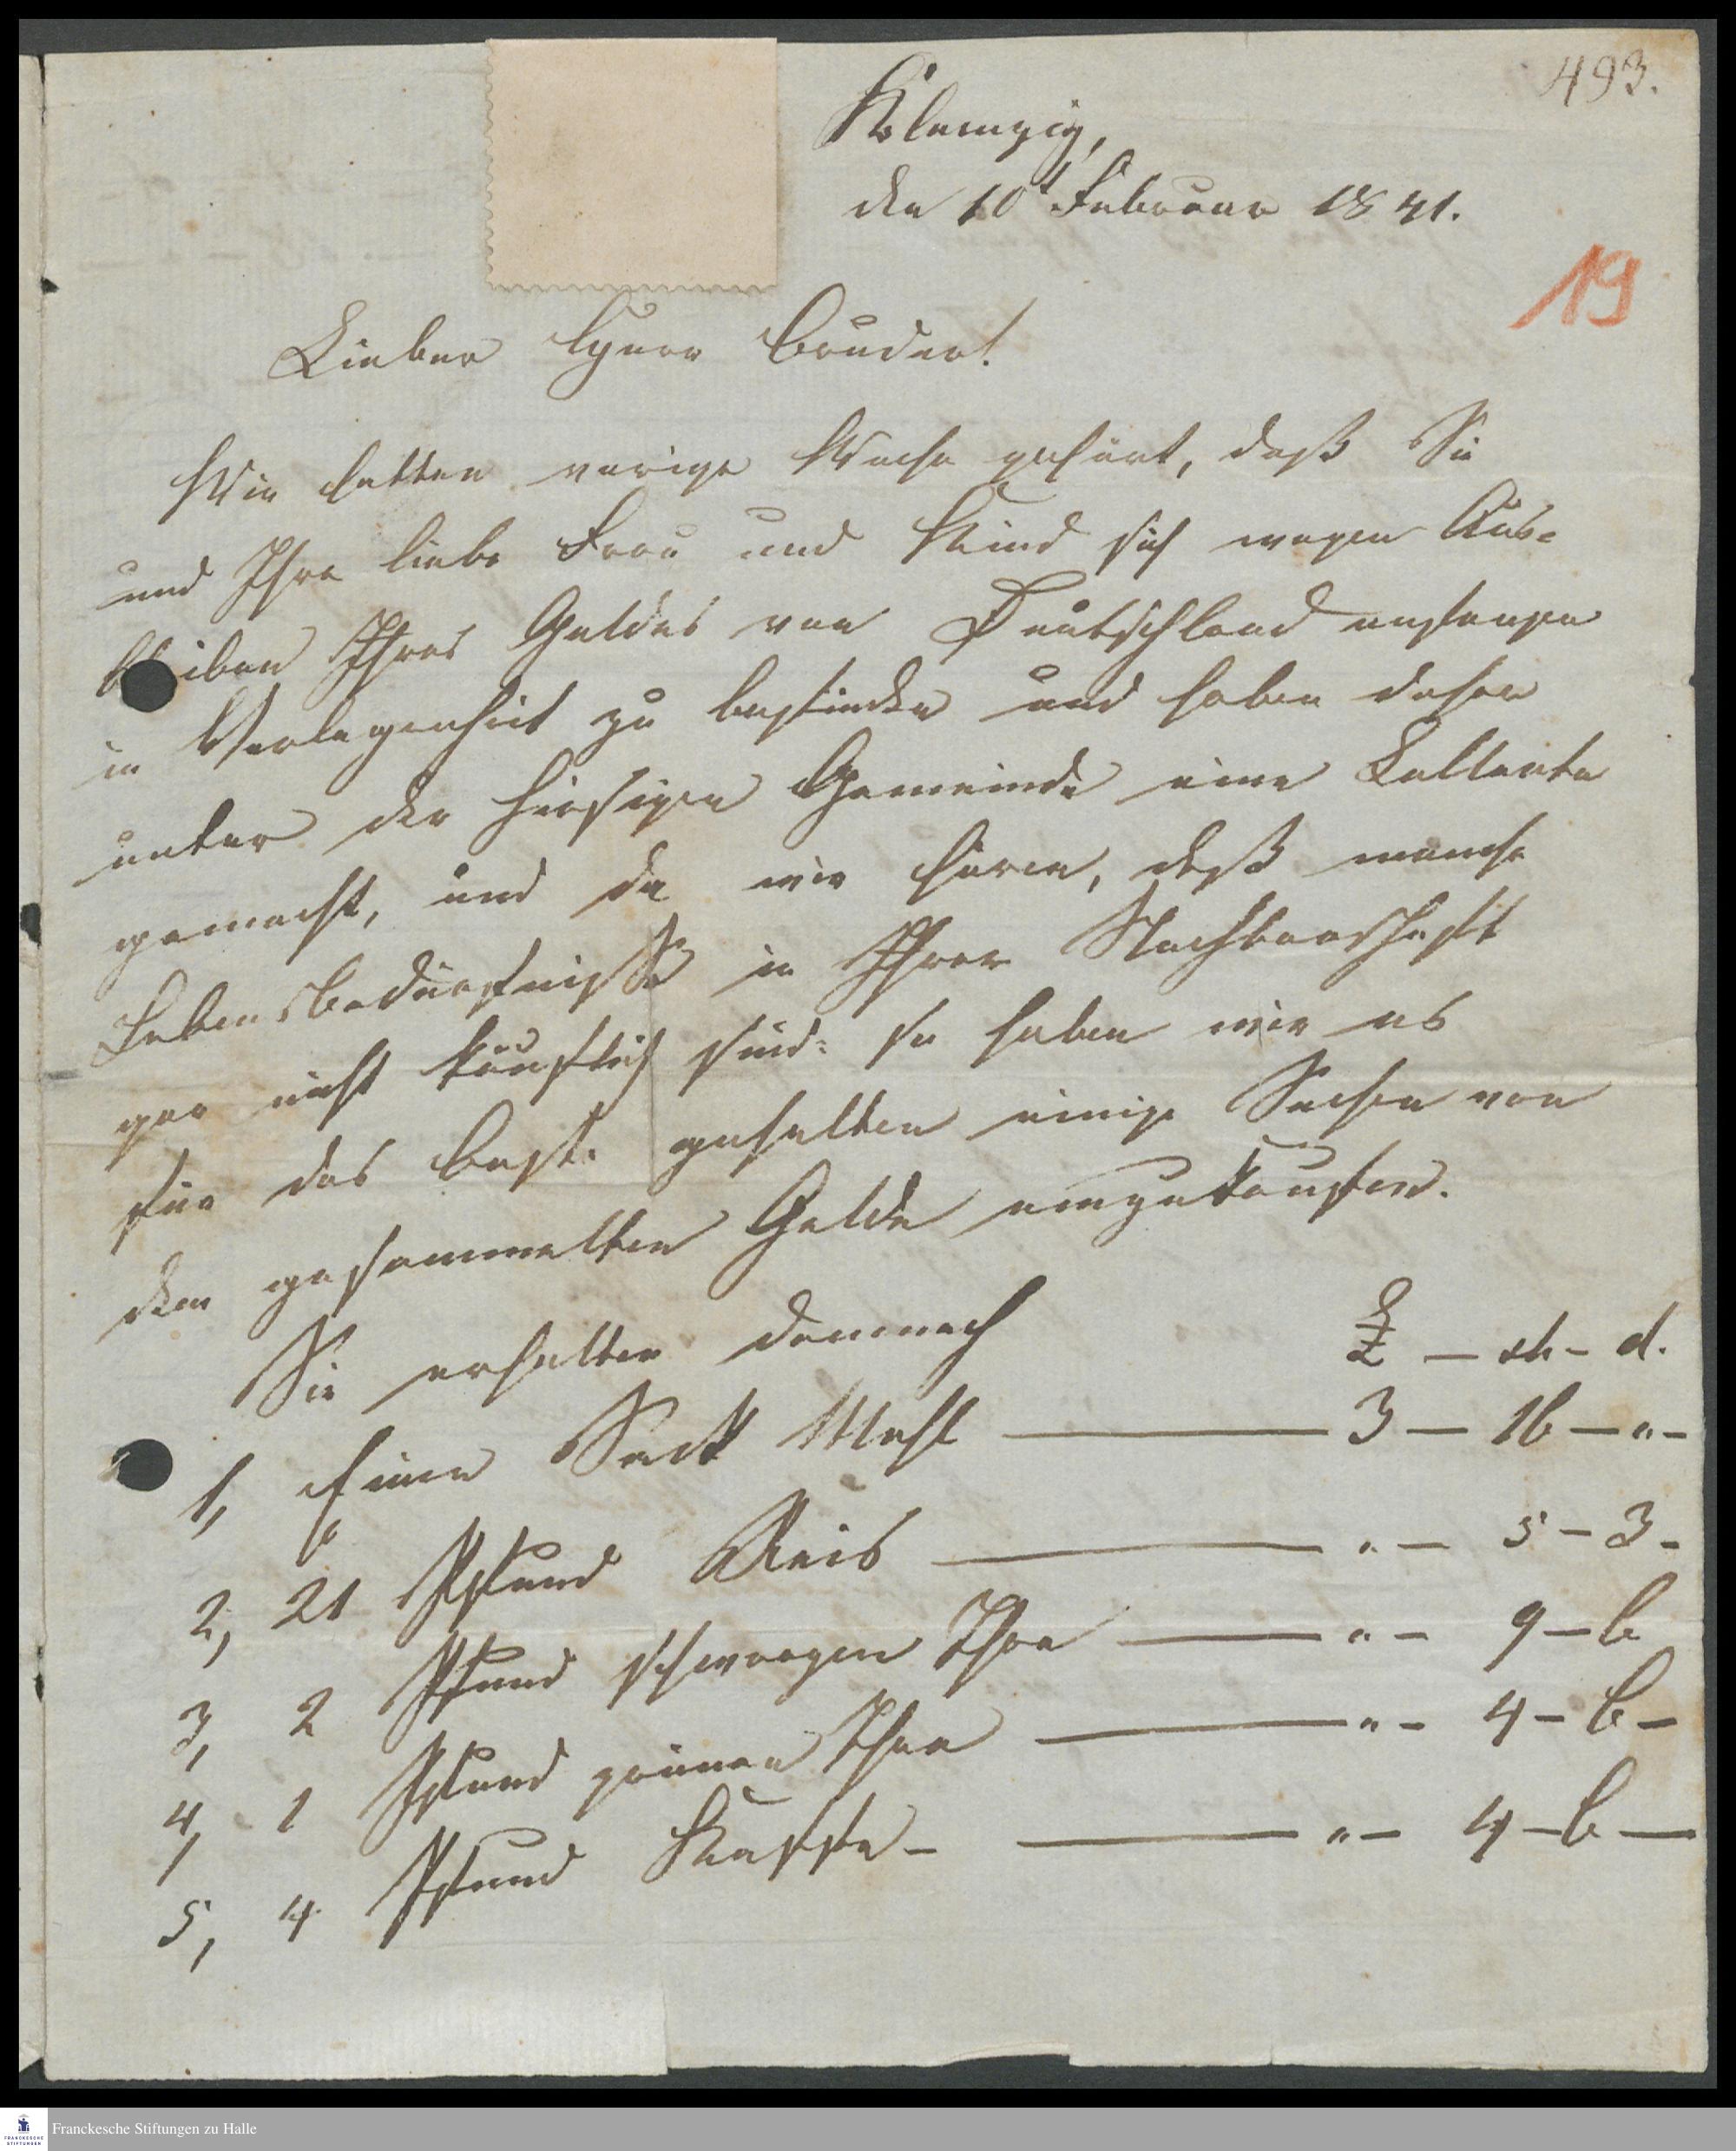 493.
Klemzig,
den 10t Februar 1841.
19
Lieber Herr Bruder!
Wir hatten vorige Woche gehört, daß Sie
und Ihre liebe Frau und Kind sich wegen Aus-
bleiben Ihres Geldes von Deutschland anfangen
in Verlegenheit zu befinden und haben daher
unter der hiesigen Gemeinde eine Collecte
gemacht, und da wir hören, daß manche
Lebensbedürfnisse in Ihrer Nachbarschaft
gar nicht käuflich sind: so haben wir es
für das Beste gehalten einige Sachen von
dem gesammelten Gelde einzukaufen.
Sie erhalten demnach £ — sh — d.
1, Einen Sack Mehl — 3 — 16 — " —
2, 21 Pfund Reis — " — 5 — 3 —
3, 2 Pfund schwarzen Thee — " — 9 — 6
4, 1 Pfund grünen Thee — " — 4 — 6 —
5, 4 Pfund Kaffee — " — 4 — 6 —
Franckesche Stiftungen zu Halle
FRANCKESCHE
STIFTUNGEN